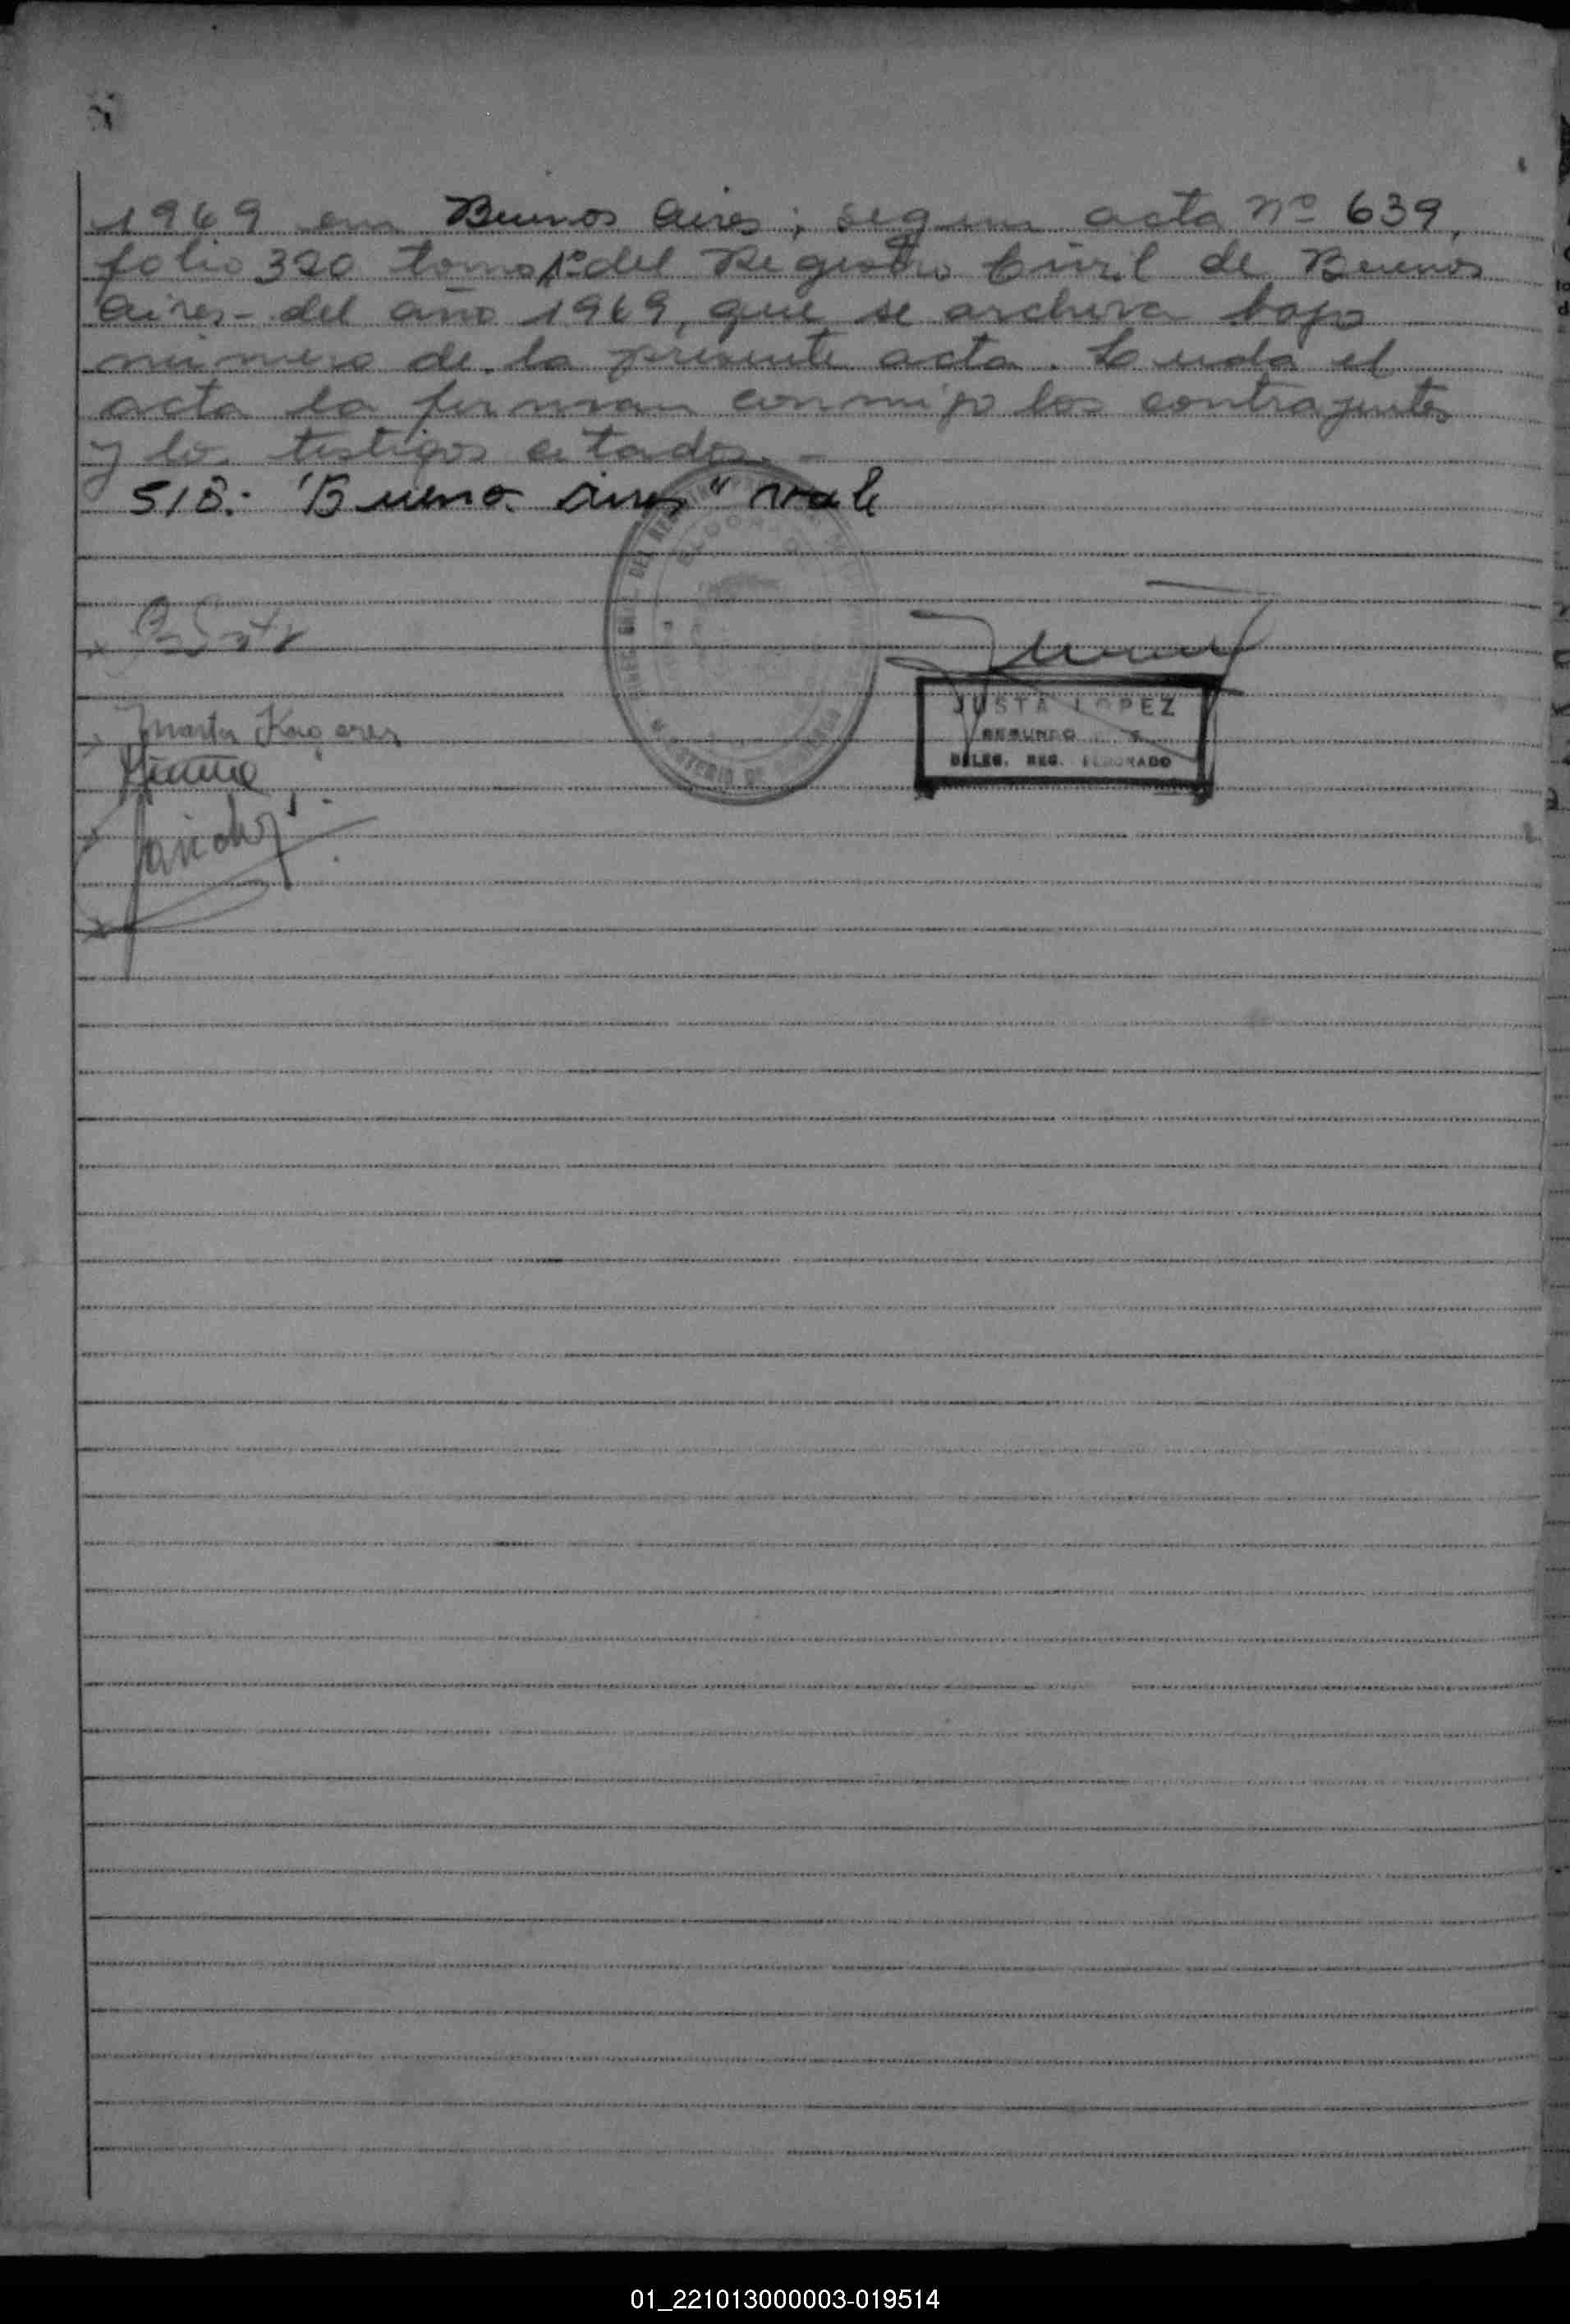 1969 en Buenos Aires; segun acta nº 639,
folio 320 tomo 1º del Registro Civil de Buenos
Aires- del año 1969, que se archiva bajo
numero de la presente acta. Leida el
acta la firman conmigo los contrayentes
y los testigos citados.-
S/B: "Buenos Aires" vale
JUSTA LOPEZ
SEGUNDO
DELEG. REG. ELDORADO
Marta
Sanchez
01_221013000003-019514